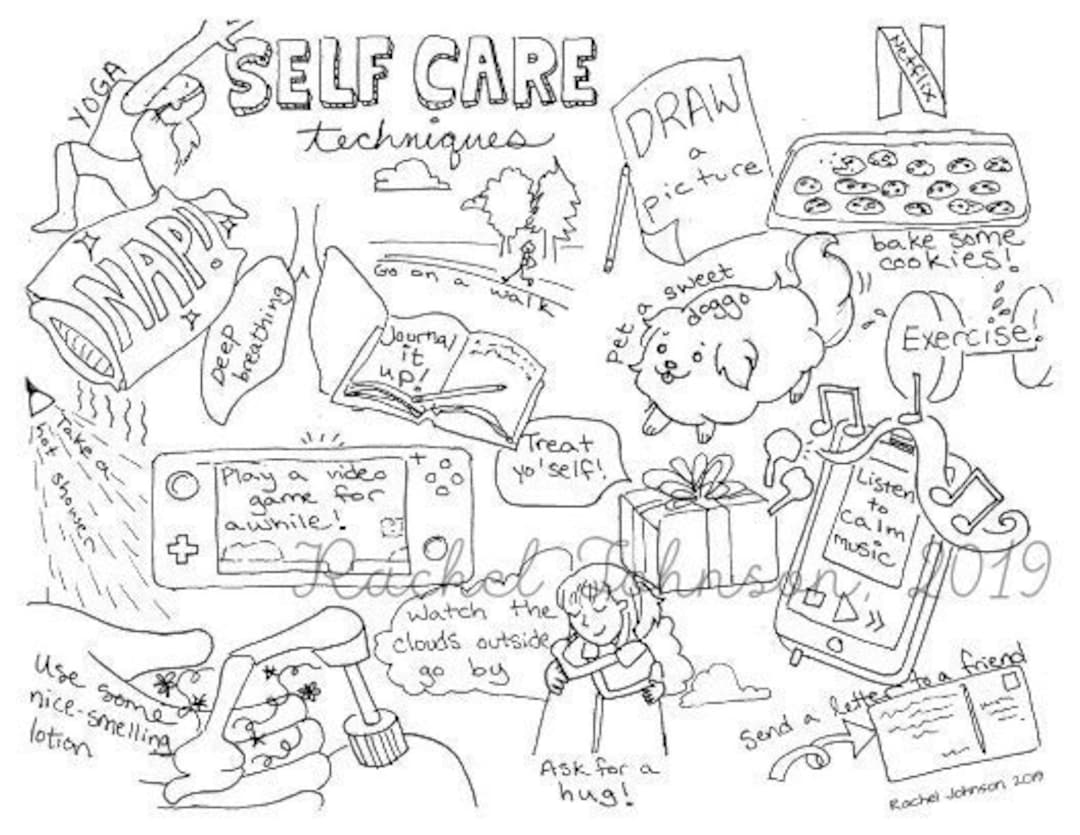 SELF CARE
techniques
YOGA
DRAW
a
picture!
Netflix
bake some
cookies!
NAP!
Go on a walk
Deep
breathing
Journal
it
up!
Pet a sweet
doggo
Exercise!
Take a
hot shower
Play a video
game for
awhile!
Treat
yo'self!
Listen
to
calm
music
Rachel Johnson, 2019
Watch the
clouds outside
go by
Use some
nice-smelling
lotion
Ask for a
hug!
Send a letter to a friend
Rachel Johnson, 2019